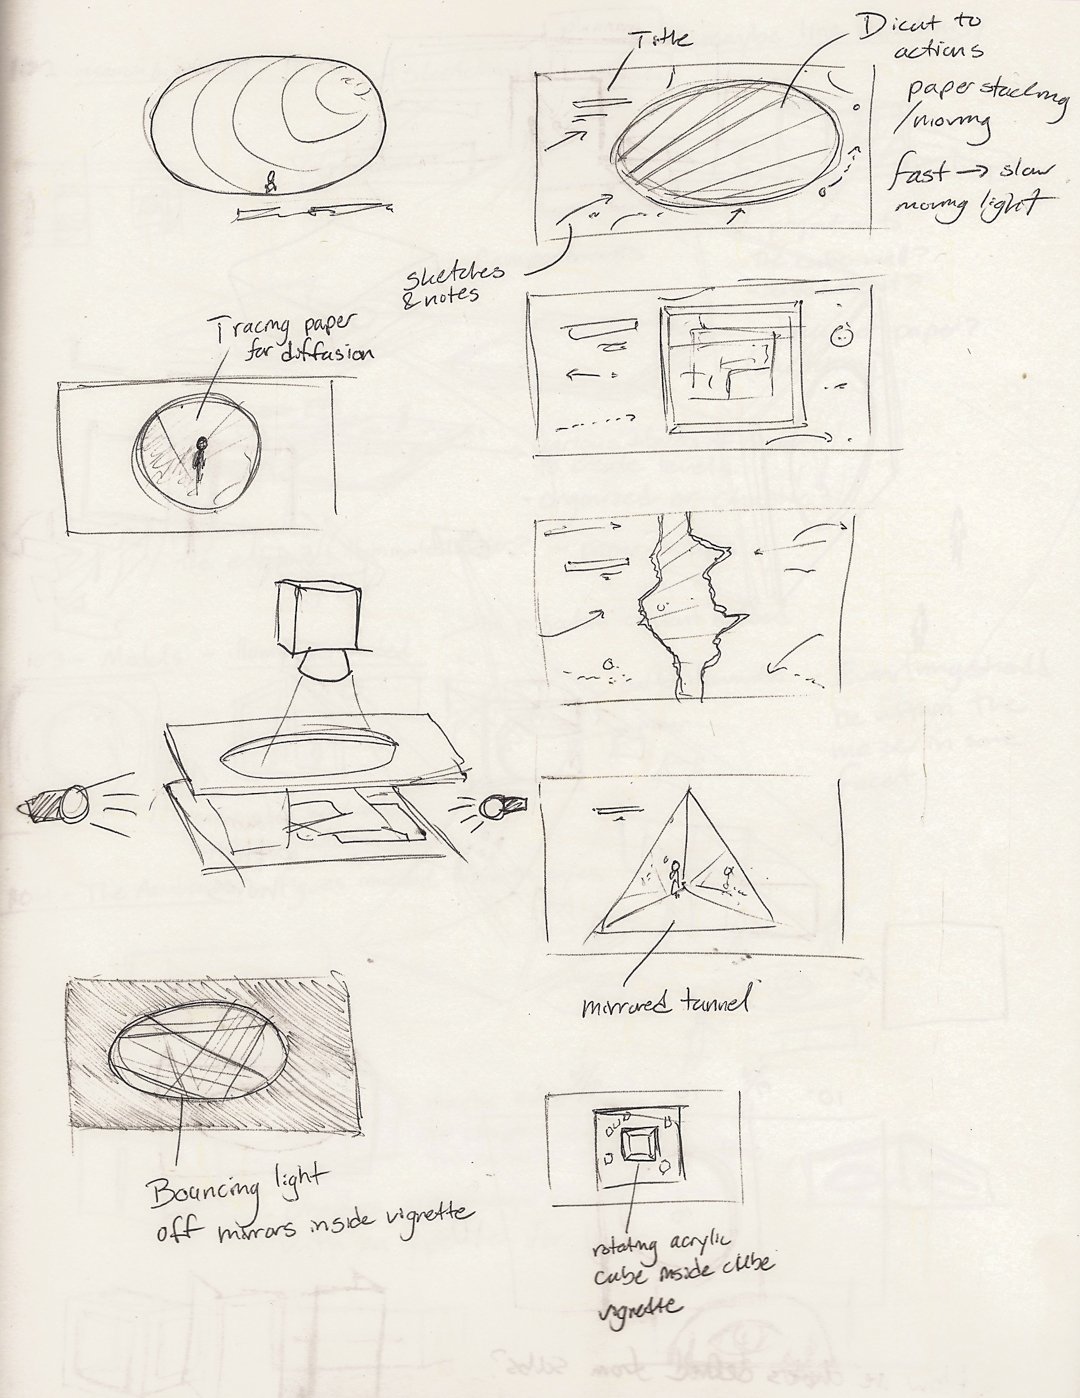 Title
Dicut to
actions
paper stacking
/moving
fast → slow
moving light
sketches
& notes
Tracing paper
for diffusion
mirrored tunnel
Bouncing light
off mirrors inside vignette
rotating acrylic
cube inside cube
vignette